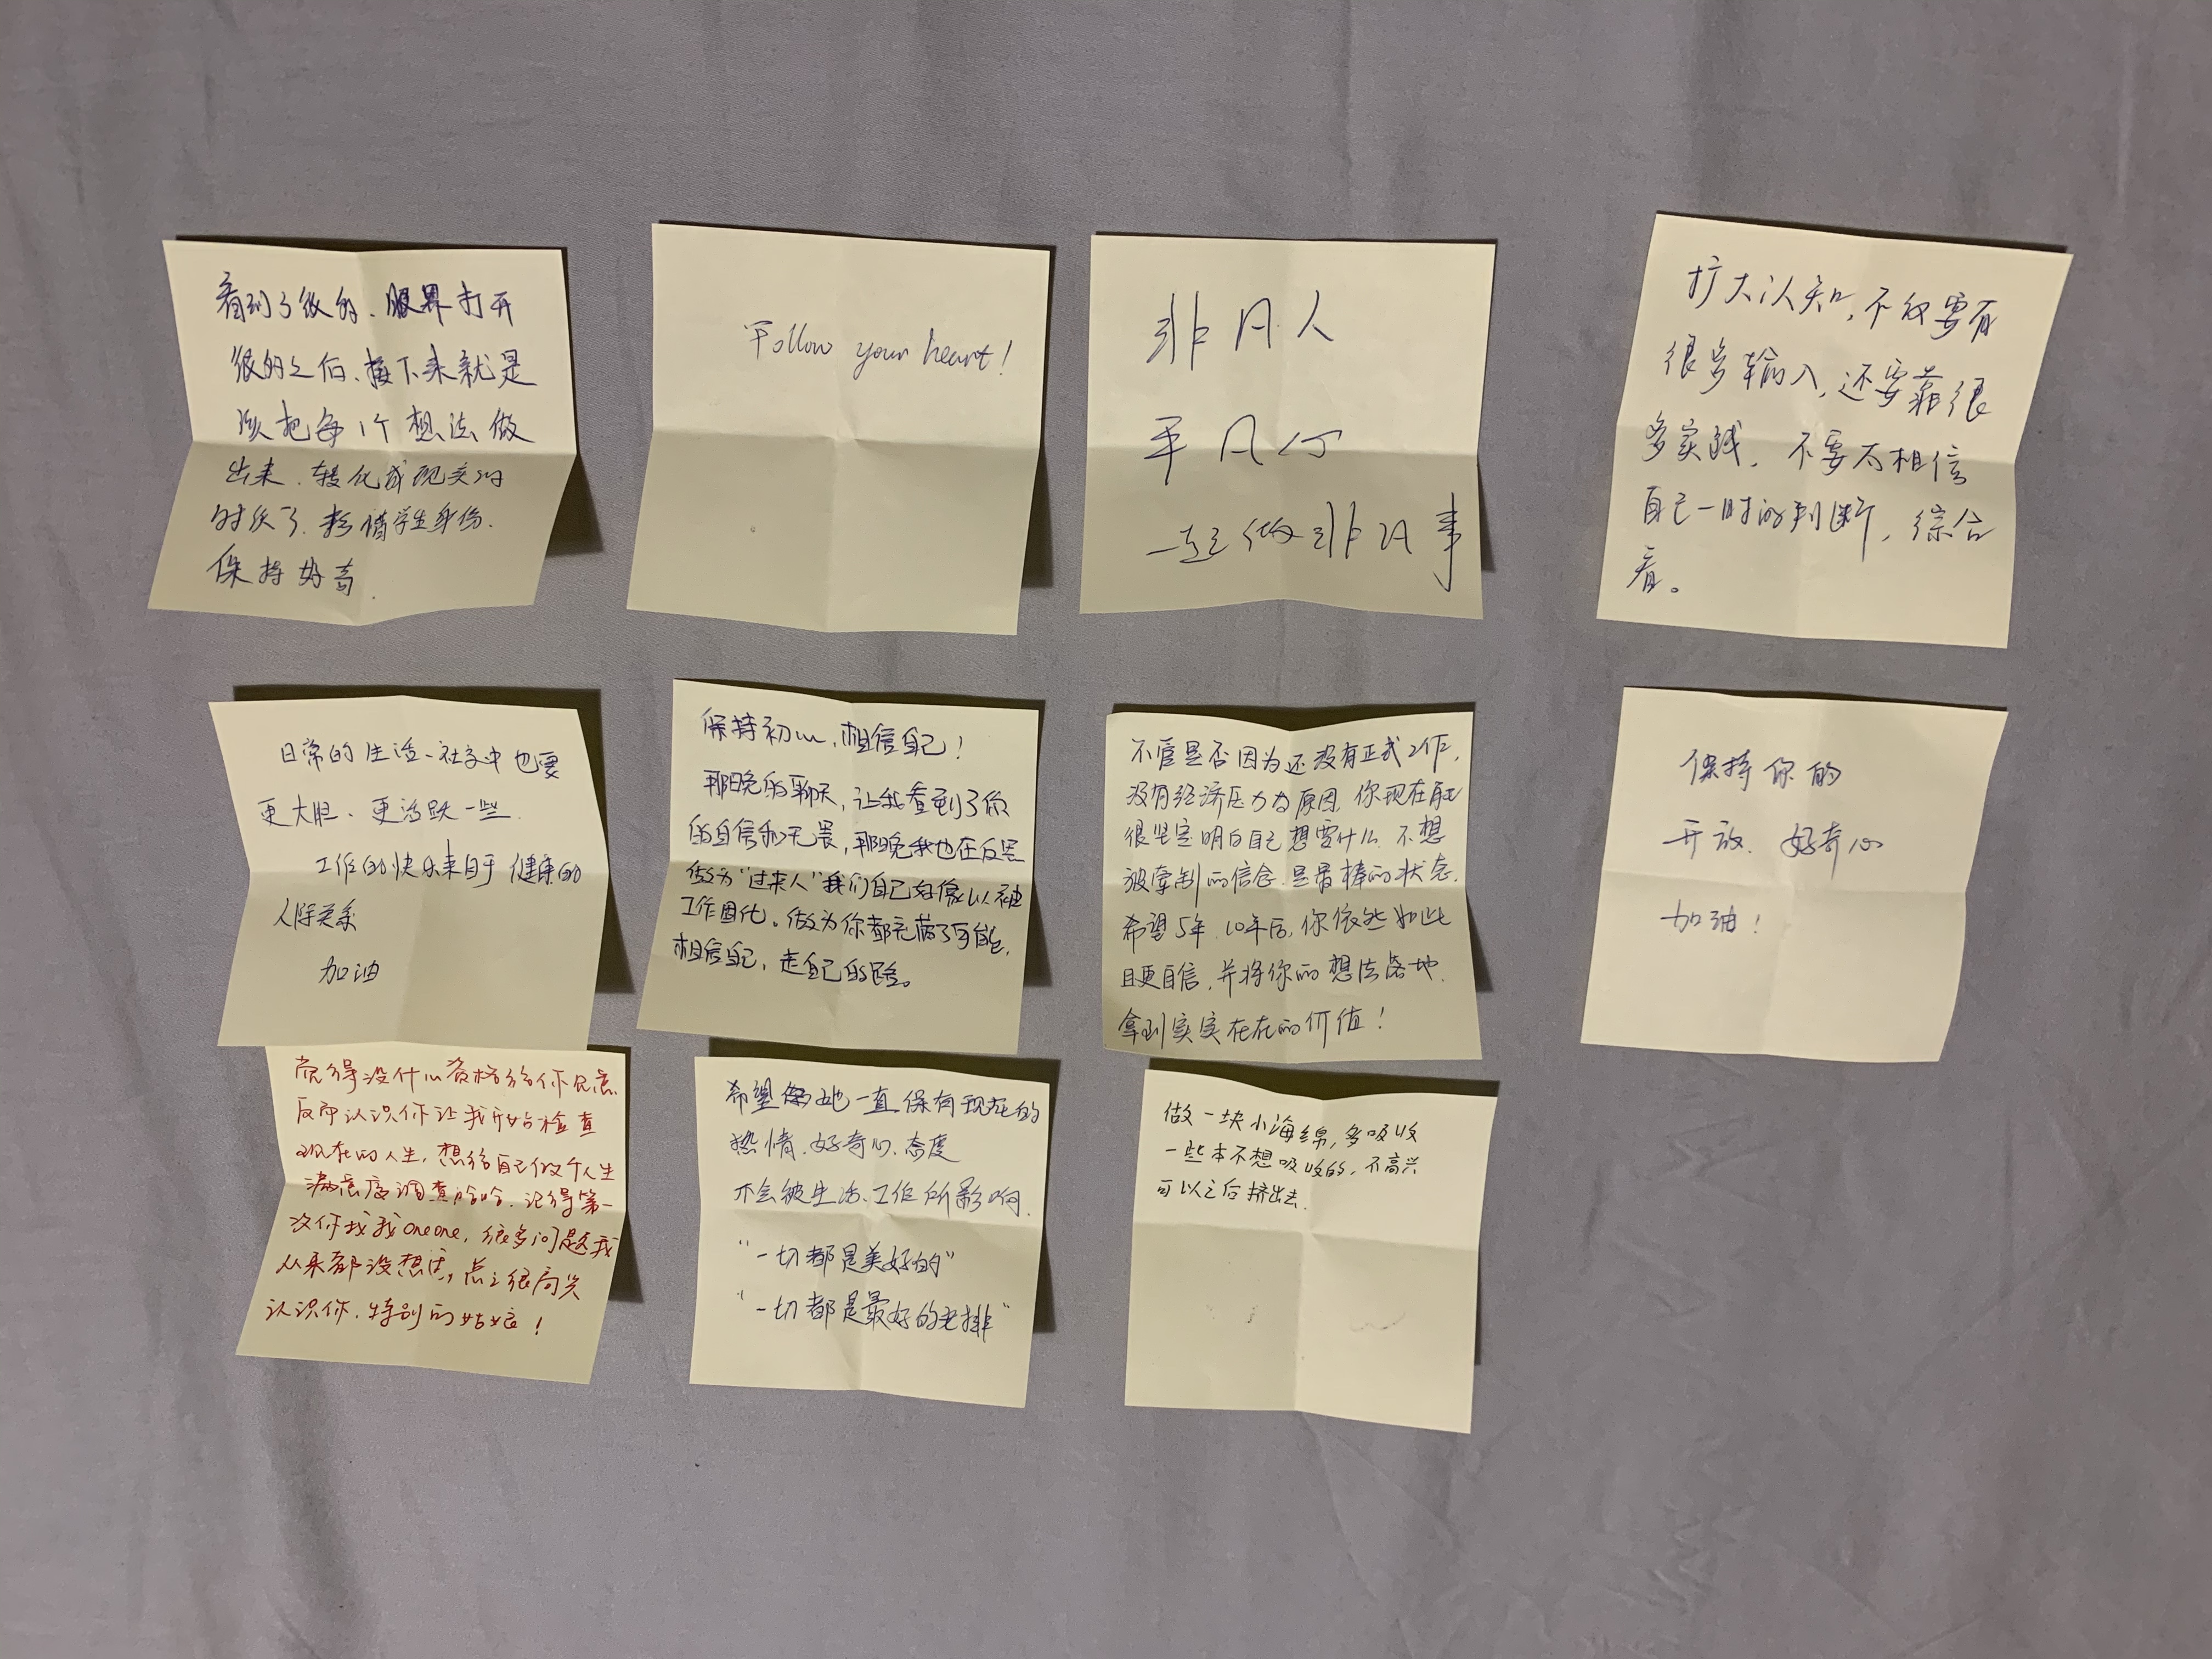 看到了很多、眼界打开
很多之后、接下来就是
该把每1个想法做
出来、转化成现实的
时候了、珍惜学生身份、
保持好奇.
Follow your heart!
非凡人
平凡心
一起做非凡事
扩大认知,不仅要有
很多输入,还要靠很
多实践,不要太相信
自己一时的判断,综合
看。
日常的生活、社交中也要
更大胆、更活跃一些.
工作的快乐来自于健康的
人际关系
加油
保持初心,相信自己!
那晚的聊天,让我看到了你
的自信和无畏,那晚我也在反思
做为“过来人”我们自己好像以被
工作固化。做为你都充满了可能,
相信自己,走自己的路。
不管是否因为还没有正式工作,
没有经济压力为原因,你现在能
很坚定明白自己想要什么 不想
被牵制的信念.是最棒的状态.
希望5年、10年后,你依然如此
且更自信,并将你的想法落地.
拿到实实在在的价值!
保持你的
开放、好奇心
加油!
觉得没什么资格给你兄意,
反而认识你让我开始检查
现在的人生,想给自己做个人生
满意度调查哈哈.记得第一
次你找我oneone,很多问题我
从来都没想过,总之很高兴
认识你.特别的姑娘!
希望她一直保有现在的
热情、好奇心、态度
不会被生活、工作所影响.
“一切都是美好的”
“一切都是最好的安排”
做一块小海绵,多吸收
一些本不想吸收的,不高兴
可以之后挤出去.